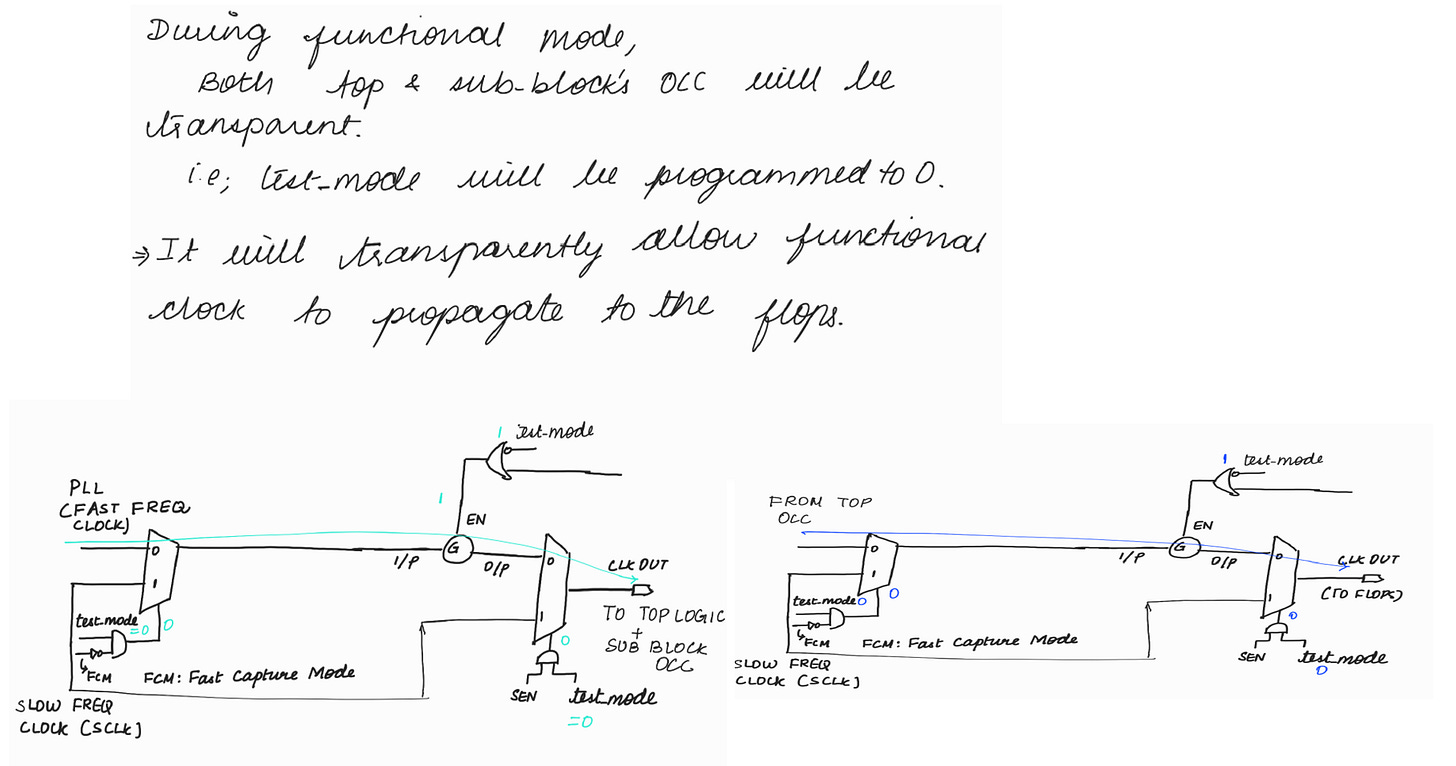 During functional mode,
Both top & sub-block's OCC will be
transparent.
i.e; test_mode will be programmed to 0.
⇒ It will transparently allow functional
clock to propagate to the flops.
1 test-mode
PLL
(FAST FREQ
CLOCK)
1
EN
0
G
I/P
O/P
0
CLK OUT
1
TO TOP LOGIC
+
SUB BLOCK
OCC
test_mode
=0 0
1
0
FCM
FCM: Fast Capture Mode
SEN
test_mode
=0
SLOW FREQ
CLOCK [SCLK]
1 test_mode
FROM TOP
OCC
EN
0
G
I/P
O/P
0
CLK OUT
1
(TO FLOPS)
test_mode 0 0
1
0
FCM
FCM: Fast Capture Mode
SEN
test_mode
0
SLOW FREQ
CLOCK [SCLK]